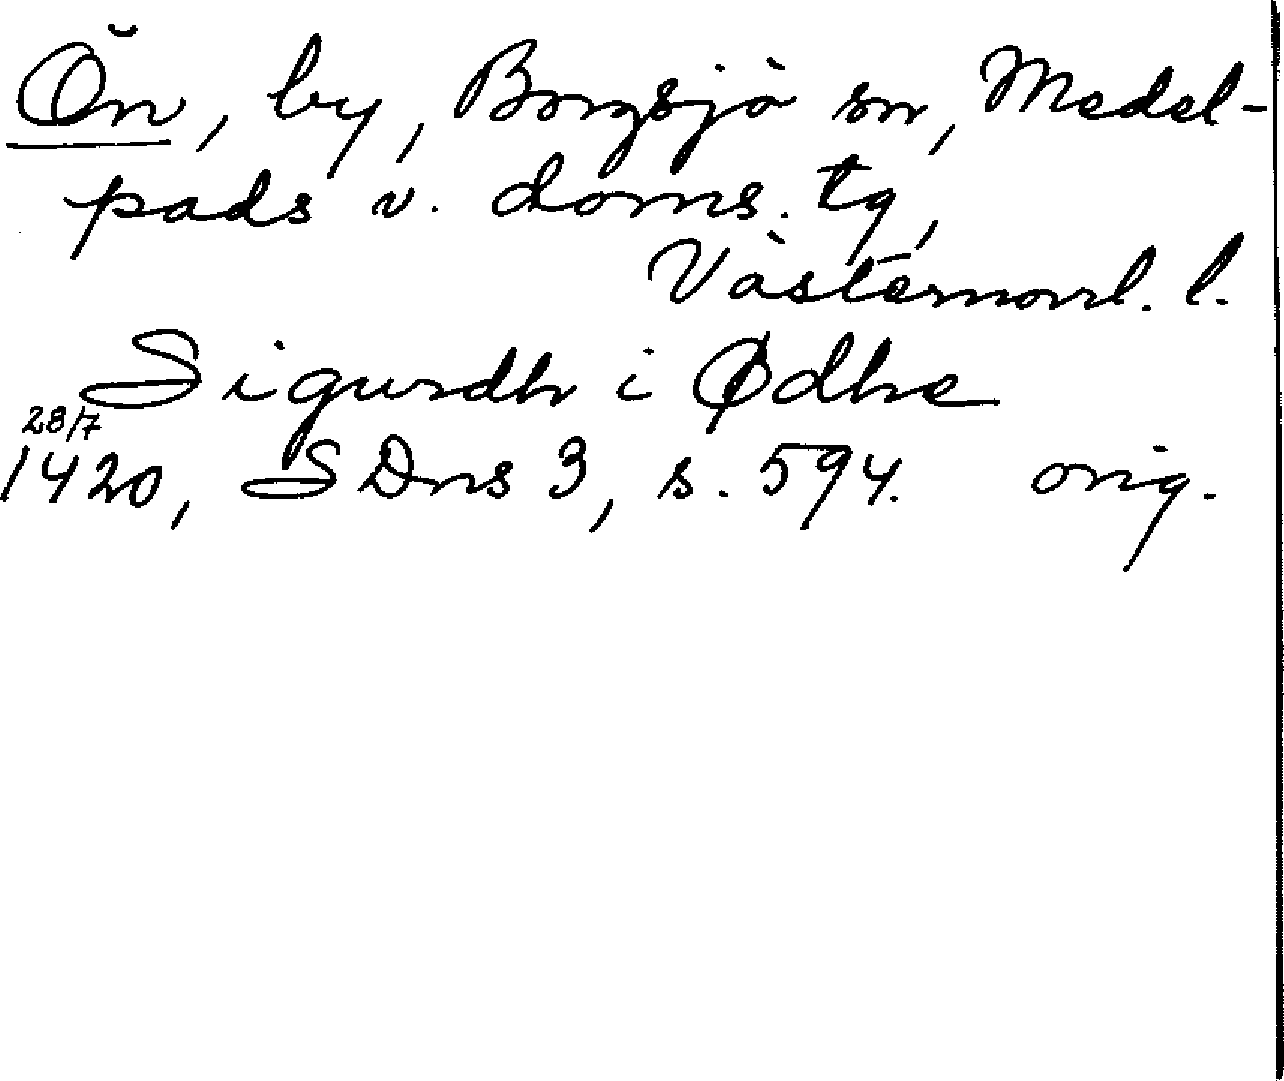 Ön, by, Borgsjö sn, Medel-
pads v. doms. tg,
Västernorrl. l.
Sigurdh i Ødhe
28/7
1420, SDns 3, s. 594. orig.